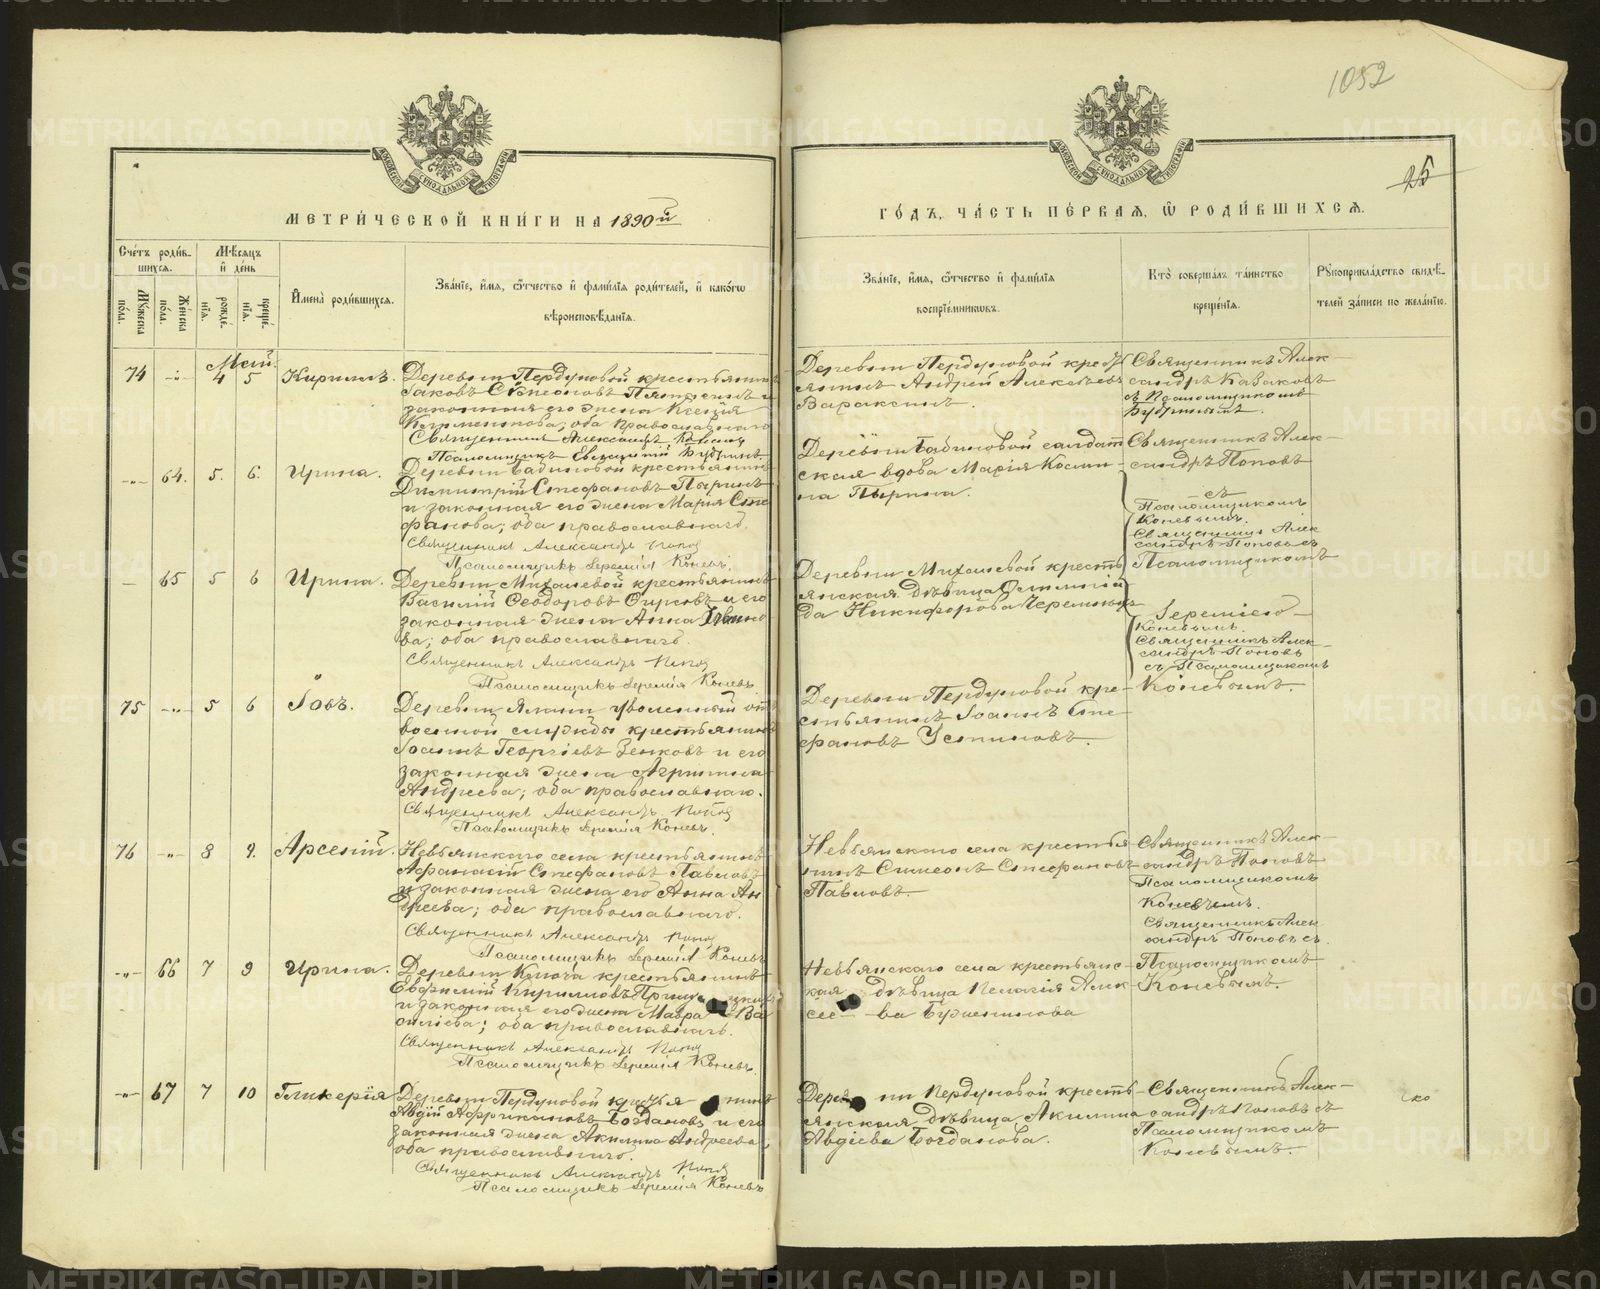 1052
25
МЕТРИ́ЧЕСКОЙ КНИ́ГИ НА 1890й
ГО́ДЪ, ЧА́СТЬ ПЕ́РВАЯ, Ѿ РОДИ́ВШИХСѦ.
Сче́тъ роди́в-
шихсѧ.
Мꙋ́жеска по́ла.
Же́нска по́ла.
Мѣ́сѧцъ
и҆ де́нь
рожде́-
нїѧ.
креще́-
нїѧ.
И҆мена̀ роди́вшихсѧ.
Зва́нїе, и҆́мѧ, ѻ҆́тчество и҆ фами́лїѧ роди́телей, и҆ како́гѡ
вѣроисповѣ́данїѧ.
Зва́нїе, и҆́мѧ, ѻ҆́тчество и҆ фами́лїѧ
воспрїе́мникѡвъ.
Кто̀ соверша́лъ та́инство
креще́нїѧ.
Рꙋкоприкла́дство свидѣ́-
телей за́писи по жела́нїю.
Май.
74 -"- 4 5 Кириллъ.
Деревни Пердуновой крестьянинъ
Іаковъ Стефановъ и
законная его жена Ксенія
Климентова; оба православнаго
Священникъ Александръ
Псаломщикъ Евлампій
Деревни Пердуновой крестья
янинъ Андрей Алексѣевъ
Вараксинъ.
Священникъ Алек-
сандръ
съ Псаломщикомъ
-"- 64. 5. 6. Ирина.
Деревни Бабиновой крестьянинъ
Димитрій Стефановъ Пыринъ
и законная его жена Марія Сте
фанова; оба православнаго.
Священникъ Александръ Попов
Псаломщикъ Іеремія Коневъ.
Деревни Бабиновой солдат
ская вдова Марія Косми-
на Пырина.
Священникъ Алек-
сандръ Поповъ
съ
Псаломщикомъ
Коневымъ.
- 65 5 6 Ирина.
Деревни Михалевой крестьянинъ
Василій Феодоровъ и его
законная жена Анна Ивано
ва; оба православнаго.
Священникъ Александръ Попов
Псаломщикъ Іеремія Коневъ
Деревни Михалевой кресть
янская дѣвица Олимпіа
да Никифорова
Священникъ Алек
сандръ Поповъ съ
Псаломщикомъ
Іереміею
Коневымъ.
75 -"- 5 6 Іовъ.
Деревни уволенный от
военной службы крестьянинъ
Іоаннъ Георгіевъ Зенковъ и его
законная жена Агрипина
Андреева; оба православнаго.
Священникъ Александръ Попов
Псаломщикъ Іеремія Коневъ.
Деревни Пердуновой кре-
стьянинъ Іоаннъ Сте-
фановъ Устиновъ.
Священникъ Алек-
сандръ Поповъ
съ Псаломщикомъ
Коневымъ.
76 -"- 8 9. Арсеній.
Невьянскаго села крестьянинъ
Афанасій Стефановъ Павловъ
и законная жена его Анна Ан
дреева; оба православнаго.
Священникъ Александръ Попов
Псаломщикъ Іеремія Коневъ
Невьянскаго села крестья
нинъ Симеонъ Стефановъ
Павловъ.
Священникъ Алек-
сандръ Поповъ
Псаломщикомъ
Коневымъ.
-"- 66 7 9 Ирина.
Деревни Ключа крестьянинъ
Евфимій Кирилловъ
и законная его жена Мавра Ва
силіева; оба православнаго.
Священникъ Александръ Попов
Псаломщикъ Іеремія Коневъ.
Невьянскаго села крестьянс-
кая дѣвица Пелагія Алек-
сее- ва Буженинова
Священникъ Алек
сандръ Поповъ съ
Псаломщикомъ
Коневымъ.
-"- 67 7 10 Гликерія
Деревни Пердуновой крестья нинъ
Авдій Африкановъ Богдановъ и его
законная жена Акилина Андреева,
оба православнаго.
Священникъ Александръ Попов
Псаломщикъ Іеремія Коневъ
Дерев ни Пердуновой кресть-
янская дѣвица Акилина
Авдіева Богданова.
Священникъ Алек-
сандръ Поповъ съ
Псаломщикомъ
Коневымъ.
METRIKI.GASO-URAL.RU